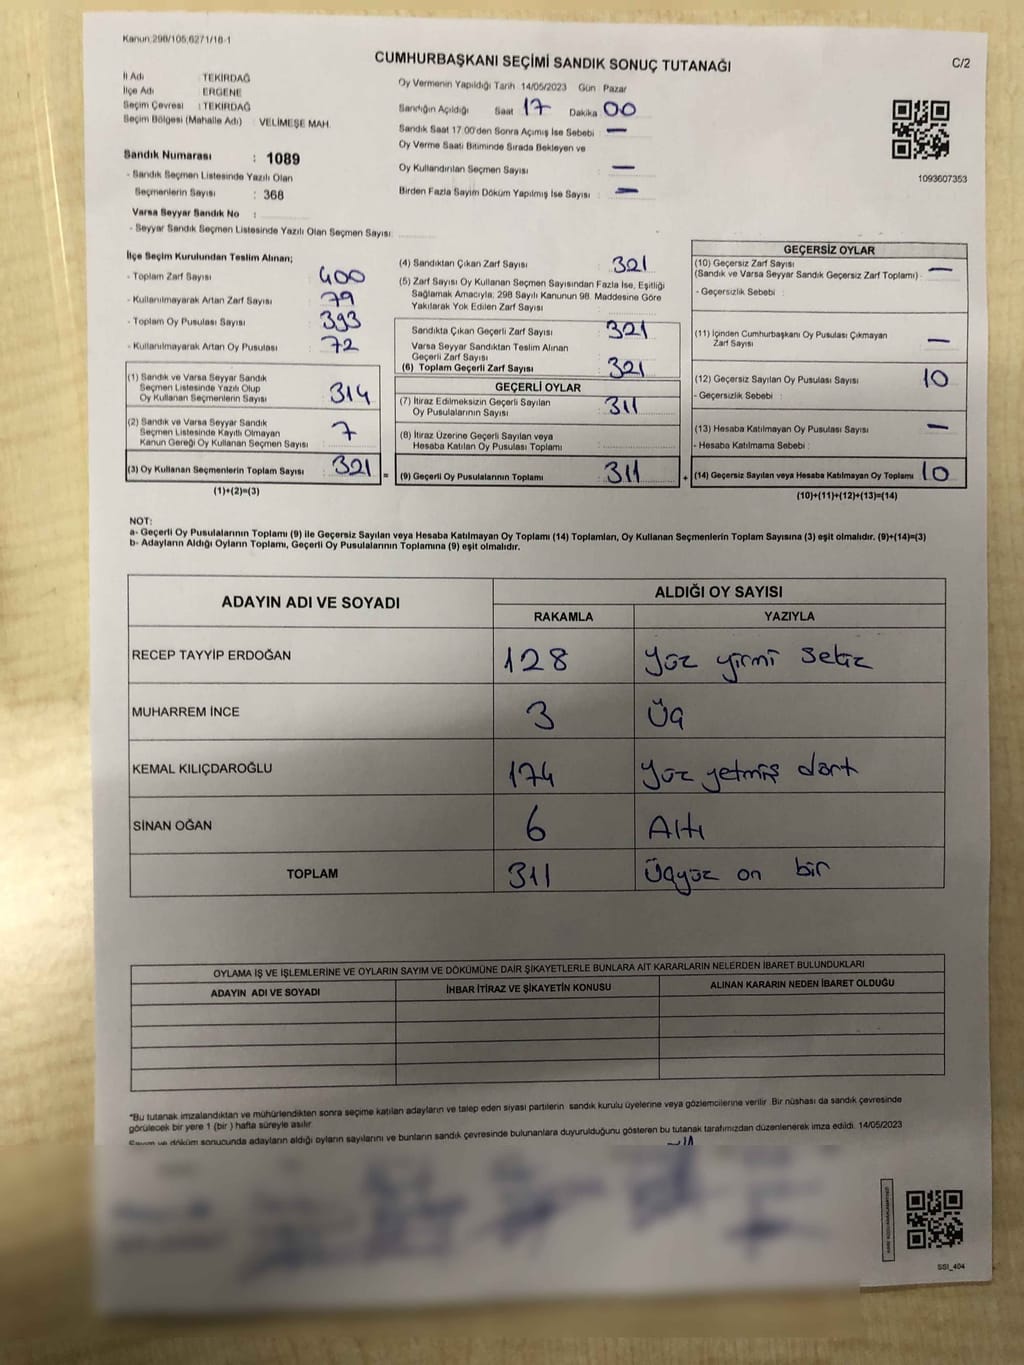 Kanun:298/105,6271/18-1
CUMHURBAŞKANI SEÇİMİ SANDIK SONUÇ TUTANAĞI
C/2
İl Adı : TEKİRDAĞ
İlçe Adı : ERGENE
Seçim Çevresi : TEKİRDAĞ
Seçim Bölgesi (Mahalle Adı) : VELİMEŞE MAH.
Oy Vermenin Yapıldığı Tarih 14/05/2023 Gün Pazar
Sandığın Açıldığı Saat 17 Dakika 00
Sandık Saat 17.00'den Sonra Açımış İse Sebebi : —
Oy Verme Saati Bitiminde Sırada Bekleyen ve
Oy Kullandırılan Seçmen Sayısı : —
Birden Fazla Sayım Döküm Yapılmış İse Sayısı : —
1093607353
Sandık Numarası : 1089
- Sandık Seçmen Listesinde Yazılı Olan
Seçmenlerin Sayısı : 368
Varsa Seyyar Sandık No :
- Seyyar Sandık Seçmen Listesinde Yazılı Olan Seçmen Sayısı:
İlçe Seçim Kurulundan Teslim Alınan;
- Toplam Zarf Sayısı : 400
- Kullanılmayarak Artan Zarf Sayısı : 79
- Toplam Oy Pusulası Sayısı : 393
- Kullanılmayarak Artan Oy Pusulası : 72
(1) Sandık ve Varsa Seyyar Sandık
Seçmen Listesinde Yazılı Olup
Oy Kullanan Seçmenlerin Sayısı : 314
(2) Sandık ve Varsa Seyyar Sandık
Seçmen Listesinde Kayıtlı Olmayan
Kanun Gereği Oy Kullanan Seçmen Sayısı : 7
(3) Oy Kullanan Seçmenlerin Toplam Sayısı : 321
(1)+(2)=(3)
=
(4) Sandıktan Çıkan Zarf Sayısı : 321
(5) Zarf Sayısı Oy Kullanan Seçmen Sayısından Fazla İse, Eşitliği
Sağlamak Amacıyla; 298 Sayılı Kanunun 98. Maddesine Göre
Yakılarak Yok Edilen Zarf Sayısı :
Sandıkta Çıkan Geçerli Zarf Sayısı : 321
Varsa Seyyar Sandıktan Teslim Alınan
Geçerli Zarf Sayısı :
(6) Toplam Geçerli Zarf Sayısı : 321
GEÇERLİ OYLAR
(7) İtiraz Edilmeksizin Geçerli Sayılan
Oy Pusulalarının Sayısı : 311
(8) İtiraz Üzerine Geçerli Sayılan veya
Hesaba Katılan Oy Pusulası Toplamı :
(9) Geçerli Oy Pusulalarının Toplamı : 311
+
GEÇERSİZ OYLAR
(10) Geçersiz Zarf Sayısı
(Sandık ve Varsa Seyyar Sandık Geçersiz Zarf Toplamı) : —
- Geçersizlik Sebebi :
(11) İçinden Cumhurbaşkanı Oy Pusulası Çıkmayan
Zarf Sayısı : —
(12) Geçersiz Sayılan Oy Pusulası Sayısı : 10
- Geçersizlik Sebebi :
(13) Hesaba Katılmayan Oy Pusulası Sayısı : —
- Hesaba Katılmama Sebebi :
(14) Geçersiz Sayılan veya Hesaba Katılmayan Oy Toplamı : 10
(10)+(11)+(12)+(13)=(14)
NOT:
a- Geçerli Oy Pusulalarının Toplamı (9) ile Geçersiz Sayılan veya Hesaba Katılmayan Oy Toplamı (14) Toplamları, Oy Kullanan Seçmenlerin Toplam Sayısına (3) eşit olmalıdır. (9)+(14)=(3)
b- Adayların Aldığı Oyların Toplamı, Geçerli Oy Pusulalarının Toplamına (9) eşit olmalıdır.
ADAYIN ADI VE SOYADI
ALDIĞI OY SAYISI
RAKAMLA YAZIYLA
RECEP TAYYİP ERDOĞAN 128 Yüz yirmi sekiz
MUHARREM İNCE 3 Üç
KEMAL KILIÇDAROĞLU 174 Yüz yetmiş dört
SİNAN OĞAN 6 Altı
TOPLAM 311 Üçyüz on bir
OYLAMA İŞ VE İŞLEMLERİNE VE OYLARIN SAYIM VE DÖKÜMÜNE DAİR ŞİKAYETLERLE BUNLARA AİT KARARLARIN NELERDEN İBARET BULUNDUKLARI
ADAYIN ADI VE SOYADI İHBAR İTİRAZ VE ŞİKAYETİN KONUSU ALINAN KARARIN NEDEN İBARET OLDUĞU
*Bu tutanak imzalandıktan ve mühürlendikten sonra seçime katılan adayların ve talep eden siyasi partilerin sandık kurulu üyelerine veya gözlemcilerine verilir. Bir nüshası da sandık çevresinde
görülecek bir yere 1 (bir ) hafta süreyle asılır.
Sayım ve döküm sonucunda adayların aldığı oyların sayılarını ve bunların sandık çevresinde bulunanlara duyurulduğunu gösteren bu tutanak tarafımızdan düzenlenerek imza edildi. 14/05/2023
SSI_404